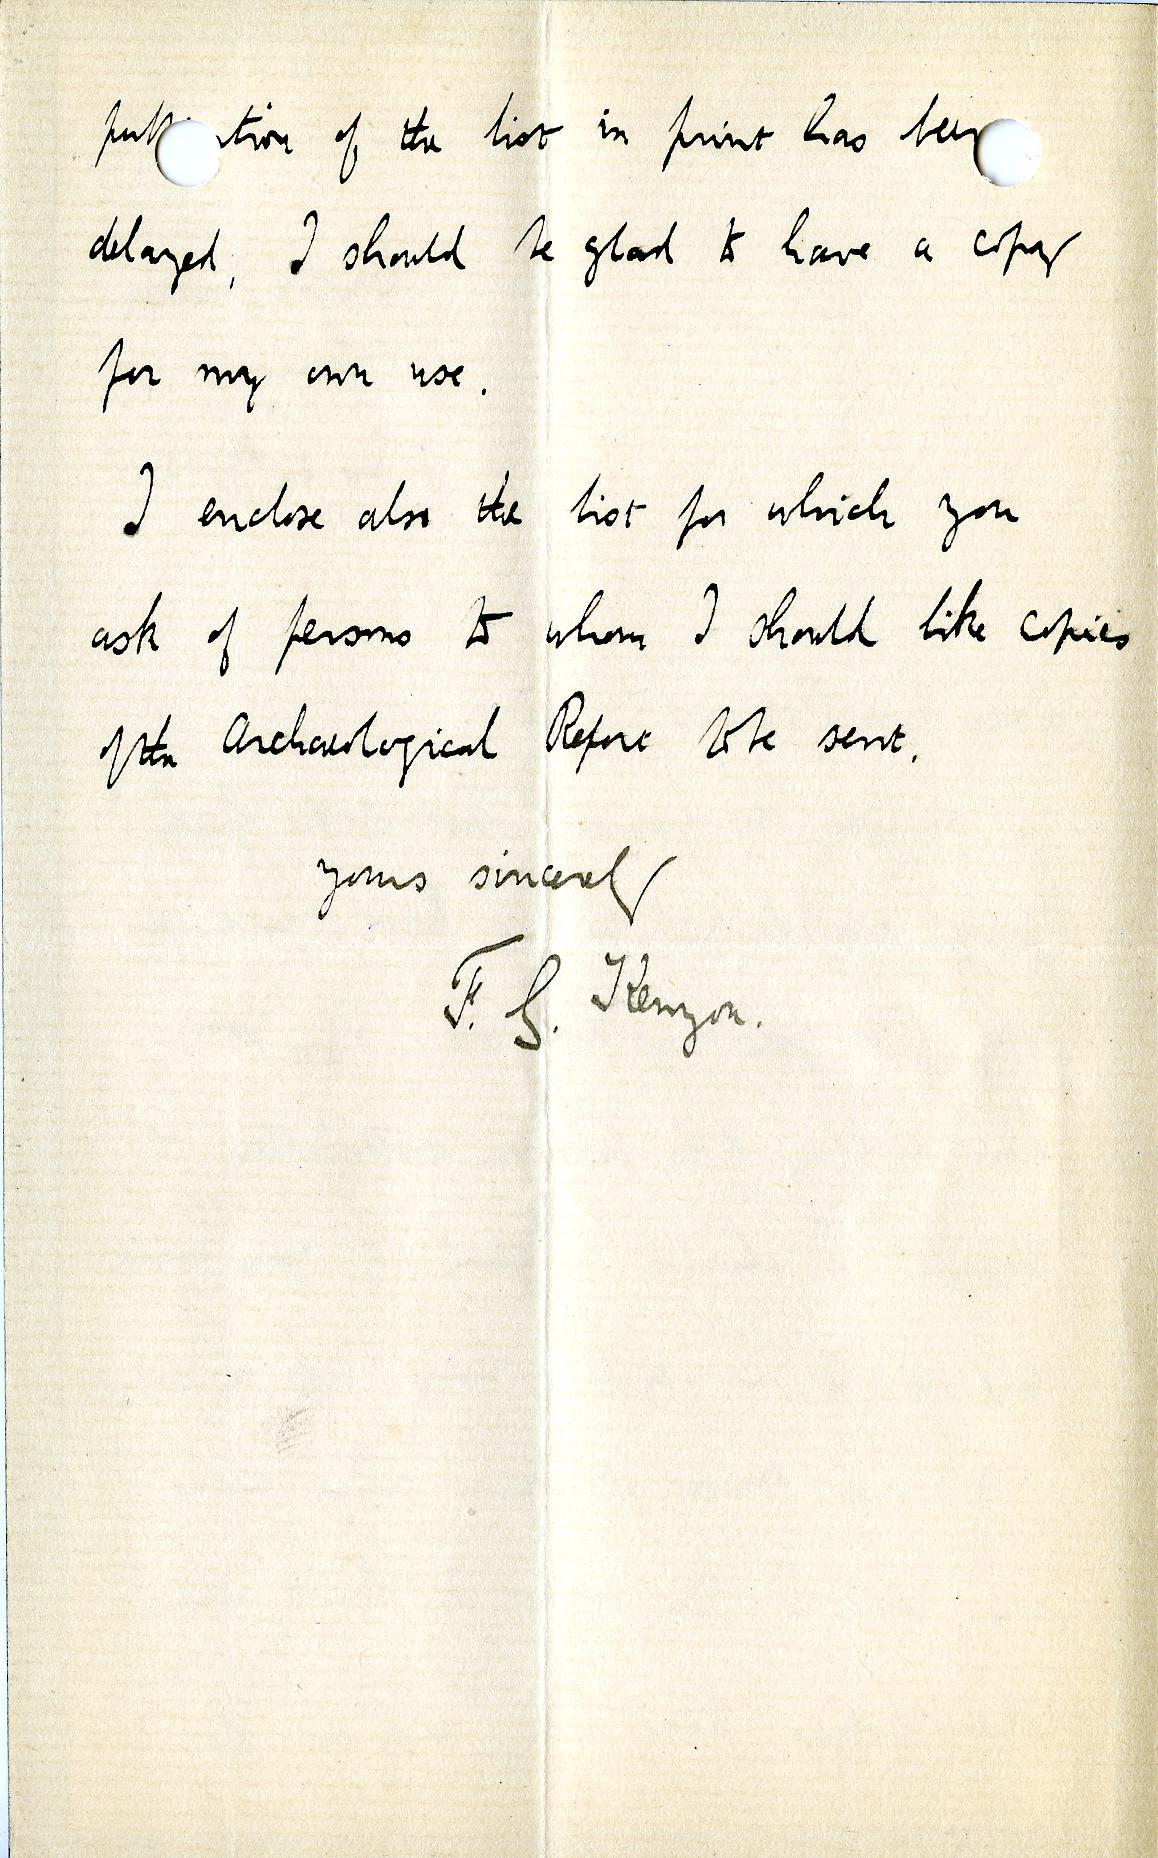 publication of the list in print has been
delayed, I should be glad to have a copy
for my own use.
I enclose also the list for which you
ask of persons to whom I should like copies
of the Archaeological Report to be sent.
yours sincerely
F. G. Kenyon.